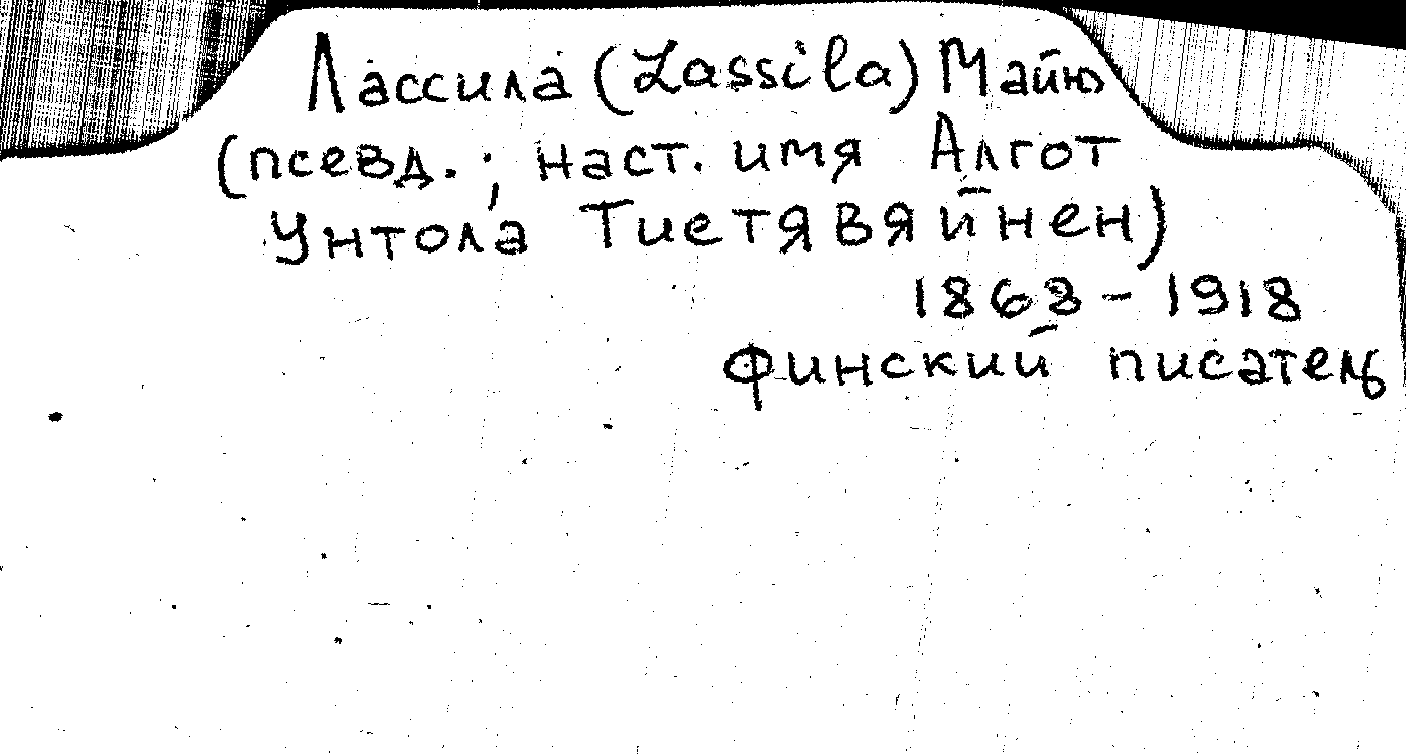 Лассила (Lassila) Майю
(псевд.; наст. имя Алгот
Унтола Тиетявяйнен)
1868 - 1918
финский писатель